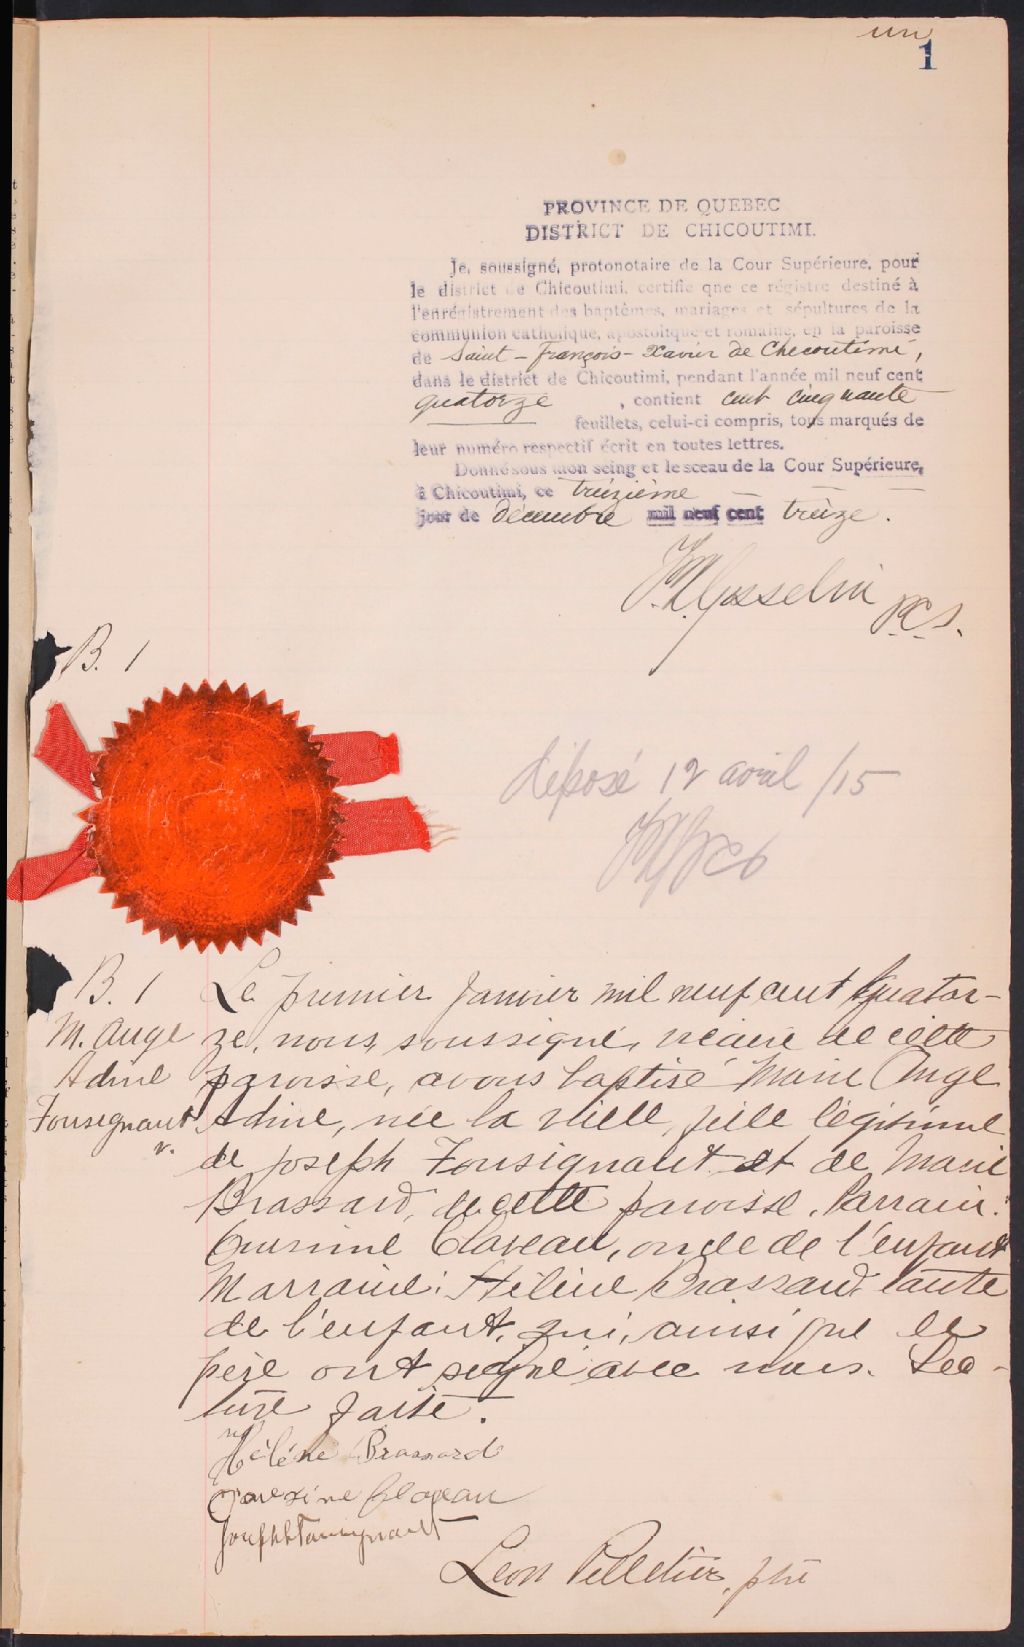 un
1
PROVINCE DE QUEBEC
DISTRICT DE CHICOUTIMI.
Je, soussigné, protonotaire de la Cour Supérieure, pour
le district de Chicoutimi, certifie que ce régistre destiné à
l'enrégistrement des baptêmes, mariages et sépultures de la
communion catholique, apostolique et romaine, en la paroisse
de Saint-François-Xavier de Chicoutimi,
dans le district de Chicoutimi, pendant l'année mil neuf cent
quatorze, contient cent cinquante
feuillets, celui-ci compris, tous marqués de
leur numéro respectif écrit en toutes lettres.
Donné sous mon seing et le sceau de la Cour Supérieure,
à Chicoutimi, ce treizième
jour de décembre mil neuf cent treize.
Gosselin P.C.S.
B. 1
déposé 12 avril /15
B. 1
M. Ange
Adine
Tousignant
v.
Le premier Janvier mil neuf cent quator-
ze, nous, soussigné, vicaire de cette
paroisse, avons baptisé Marie Ange
Adine, née la vielle, fille légitime
de Joseph Tousignant et de Marie
Brassard, de cette paroisse. Parrain:
Claveau, oncle de l'enfant
Marraine: Hélène Brassard, tante
de l'enfant, qui, ainsi que le
père ont signé avec nous. Lec-
ture faite.
Hélène Brassard
Claveau
Joseph Tousignant
Leon Pelletier, ptre